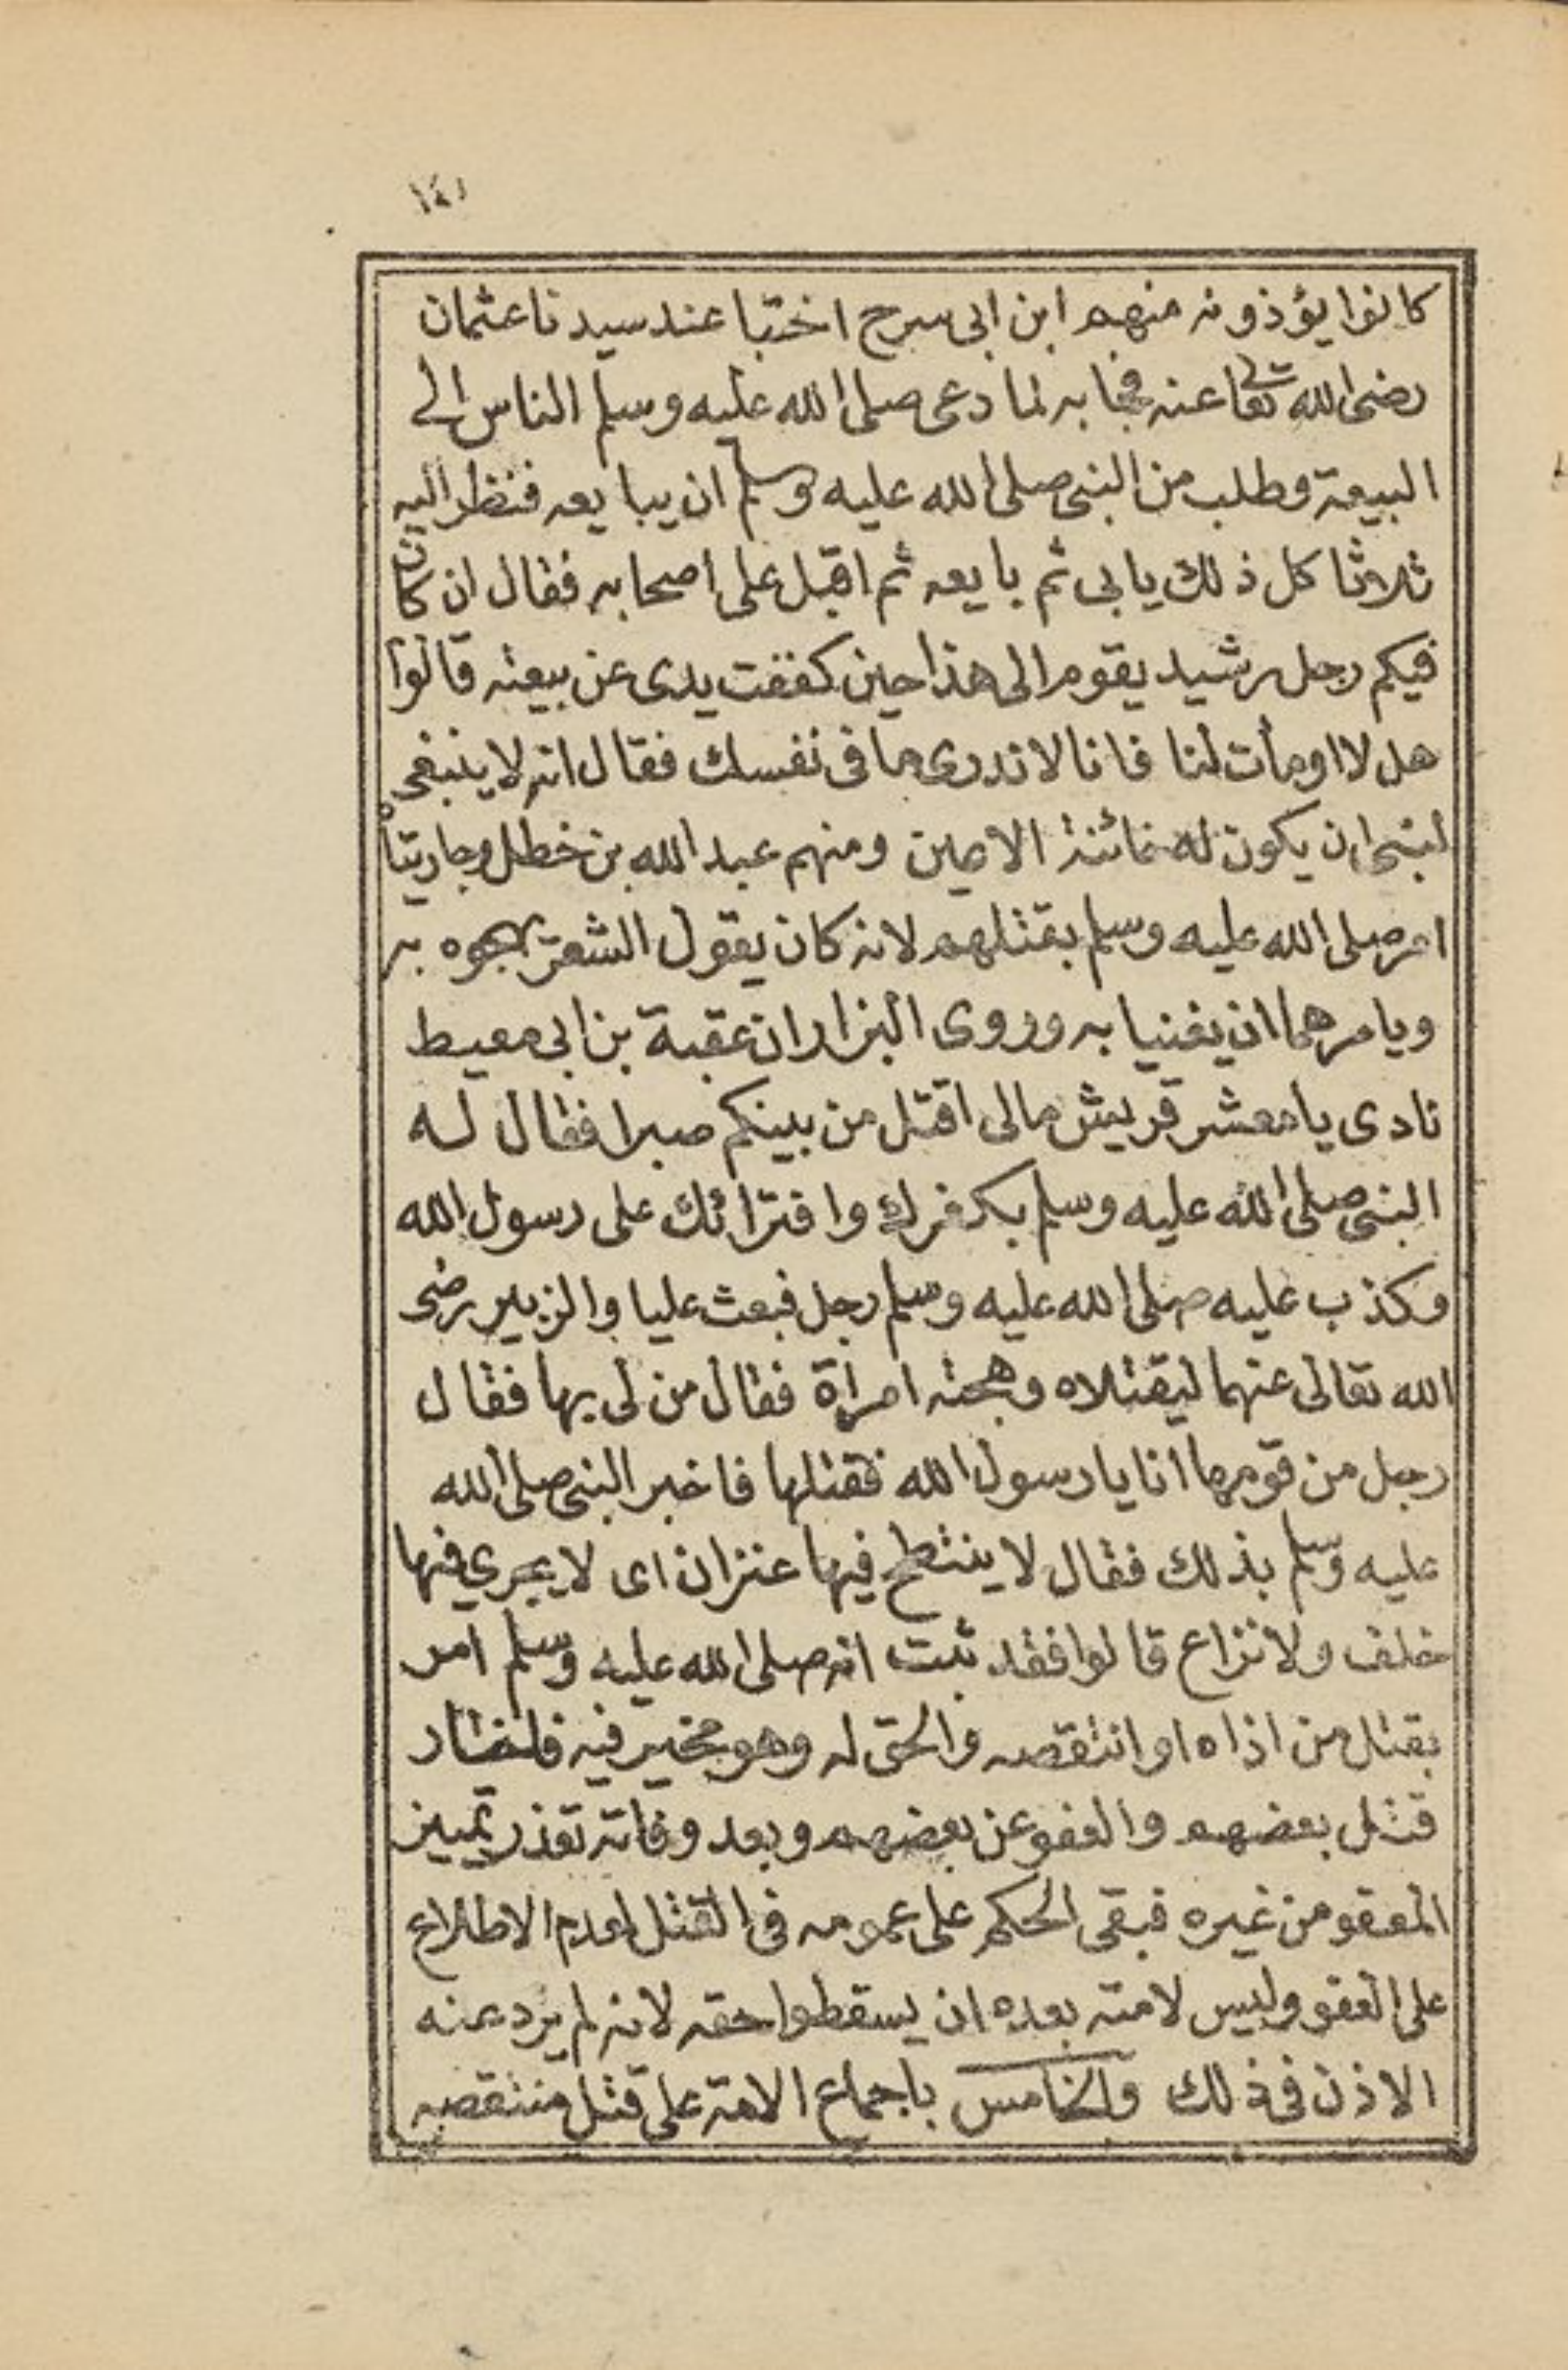 ١٤١
كانوا يؤذونه منهم ابن ابى سرح اختبا عند سيدنا عثمان
رضى الله تعالى عنه فجا به لما دعى صلى الله عليه وسلم الناس الى
البيعة وطلب من النبى صلى الله عليه وسلم ان يبايعه فنظر اليه
ثلاثا كل ذلك يابى ثم بايعه ثم اقبل على اصحابه فقال ان كان
فيكم رجل رشيد يقوم الى هذا حين كففت يدى عن بيعته قالوا
هل لا اومأت لنا فانا لا ندرى ما فى نفسك فقال انه لا ينبغى
لنبى ان يكون له خائنة الاعين ومنهم عبد الله بن خطل وجاريتاه
امر صلى الله عليه وسلم بقتلهم لانه كان يقول الشعر يهجوه به
ويامرهما ان يغنيا به وروى البزار ان عقبة بن ابى معيط
نادى يا معشر قريش مالى اقتل من بينكم صبرا فقال له
النبى صلى الله عليه وسلم بكفرك وافترائك على رسول الله
وكذب عليه صلى الله عليه وسلم رجل فبعث عليا والزبير رضى
الله تعالى عنهما ليقتلاه وهجته امرأة فقال من لى بها فقال
رجل من قومها انا يا رسول الله فقتلها فاخبر النبى صلى الله
عليه وسلم بذلك فقال لا ينتطح فيها عنزان اى لا يجرى فيها
خلف ولا نزاع قالوا فقد ثبت انه صلى الله عليه وسلم امر
بقتل من اذاه او انتقصه والحق له وهو مخير فيه فاختار
قتل بعضهم والعفو عن بعضهم وبعد وفاته تعذر تمييز
المعفو من غيره فبقى الحكم على عمومه فى القتل لعدم الاطلاع
على العفو وليس لامته بعده ان يسقطوا حقه لانه لم يرد عنه
الا ذن فى ذلك والخامس باجماع الامة على قتل منتقصه